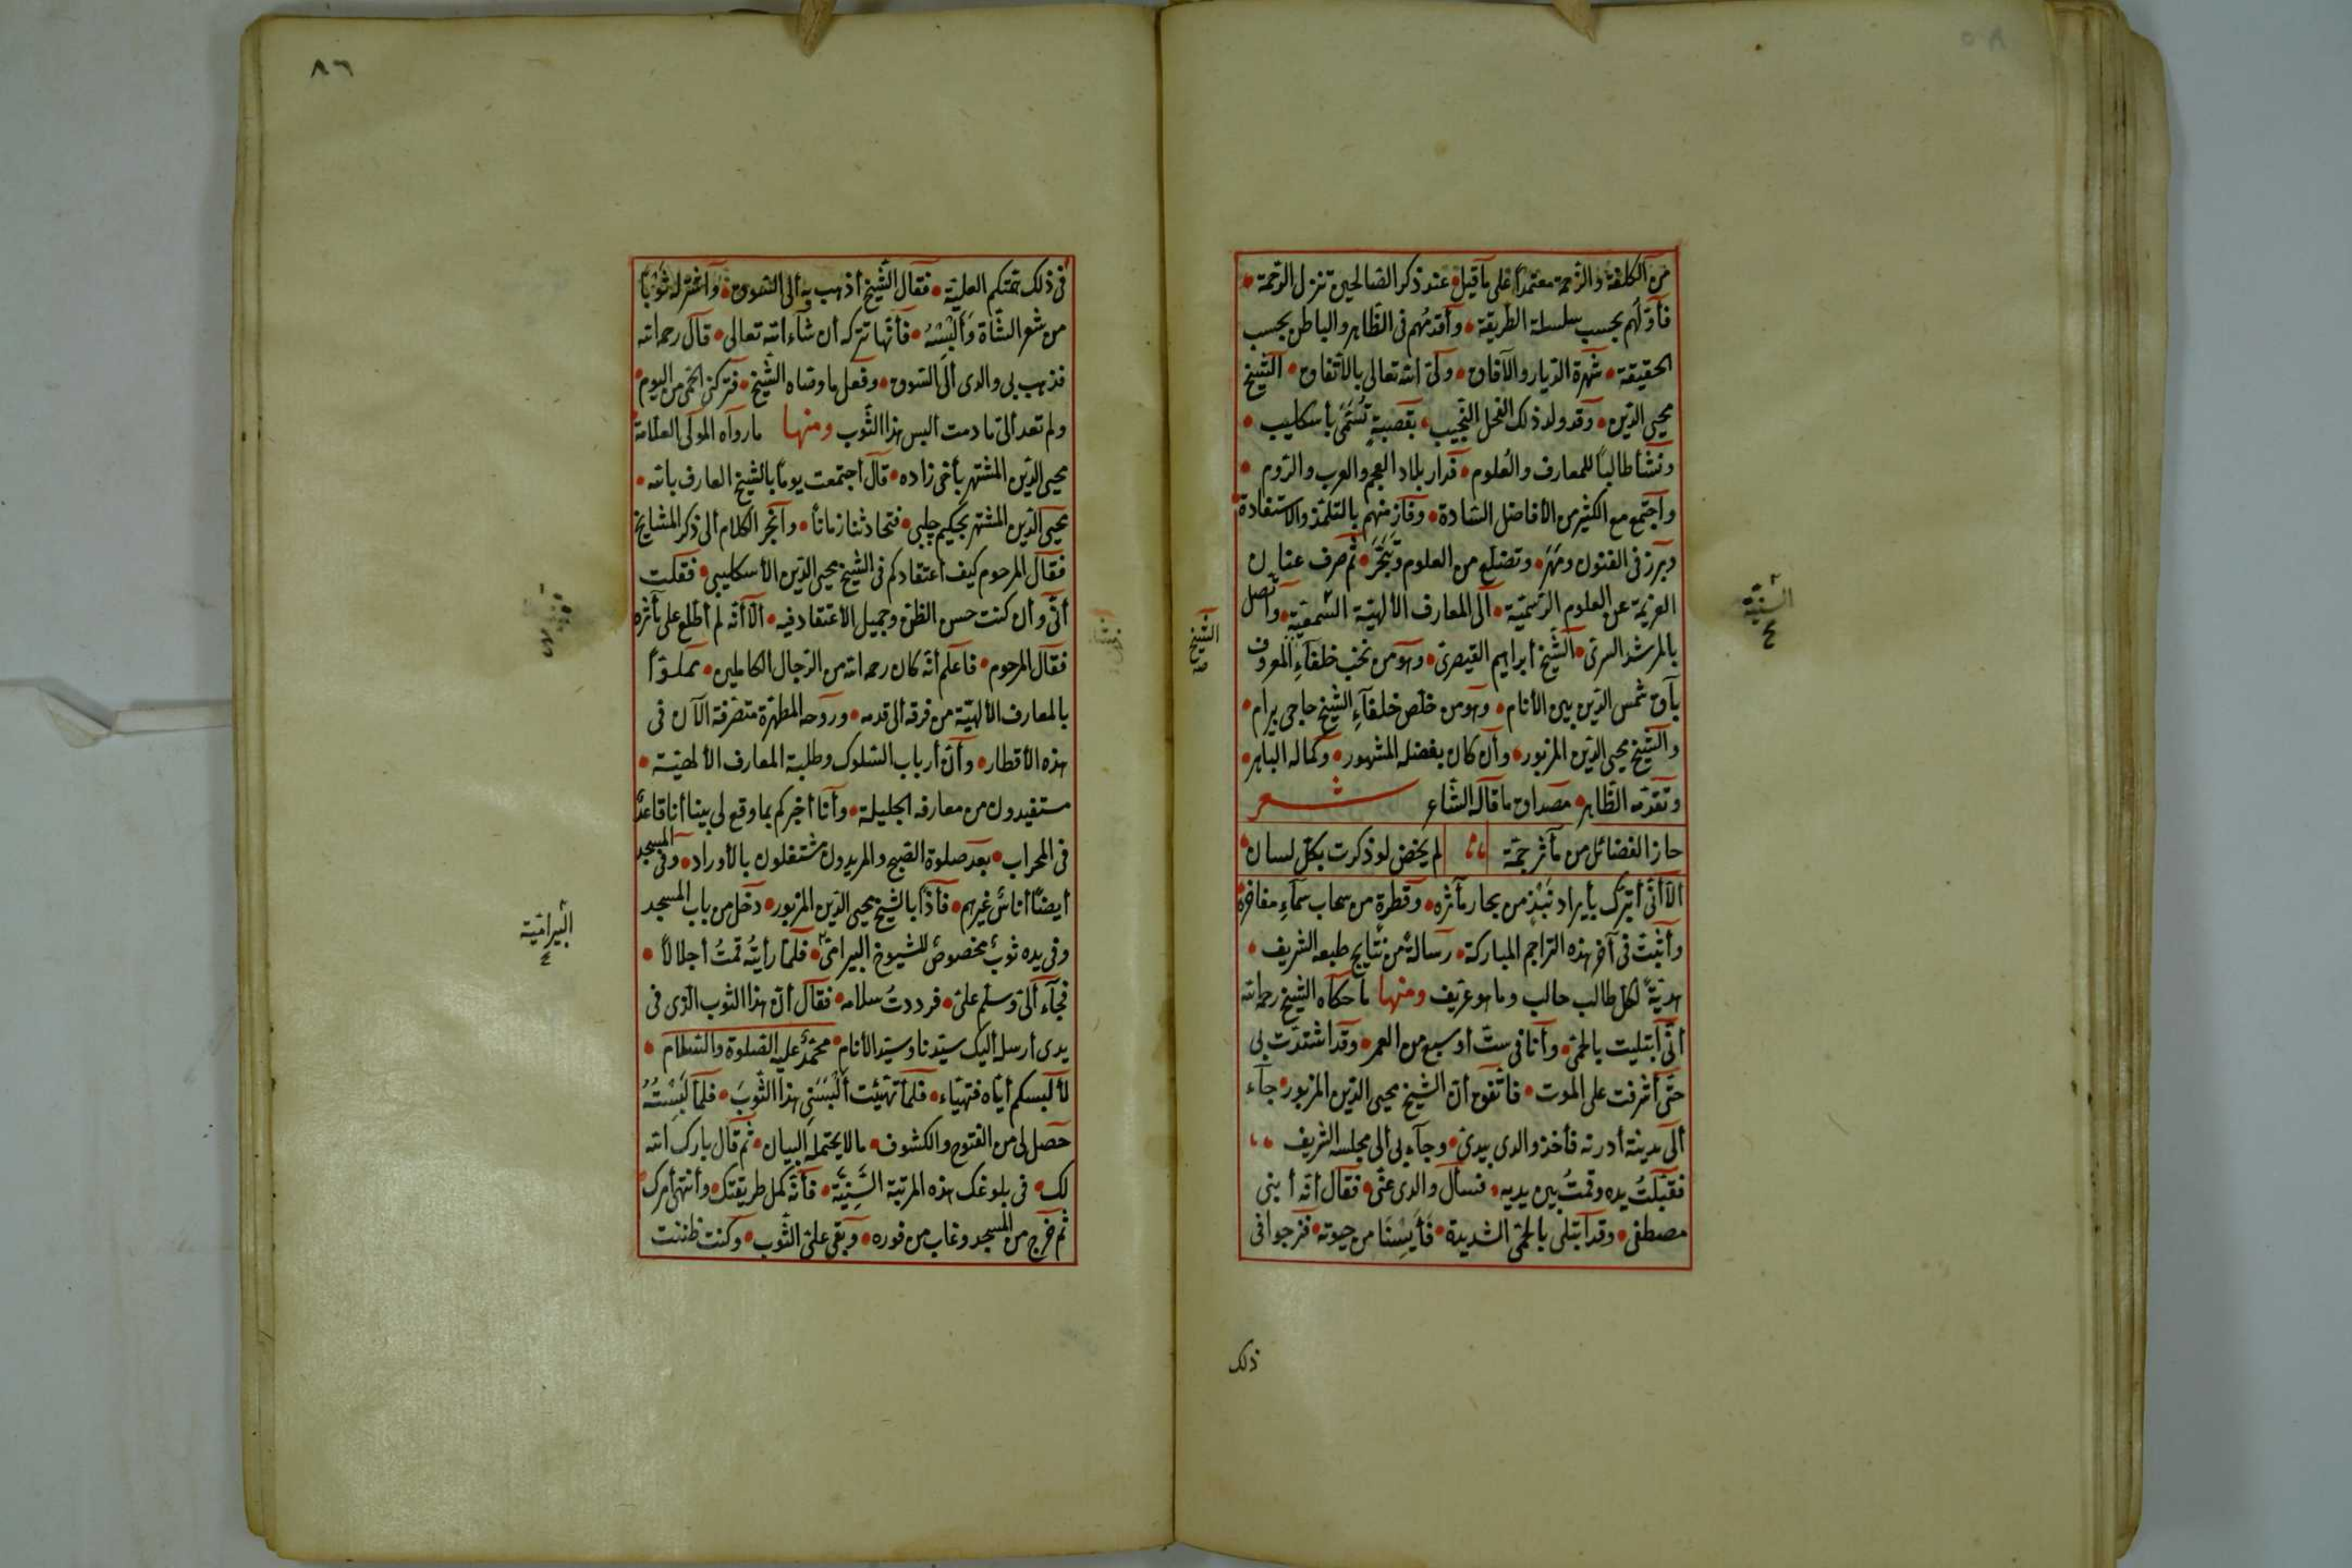 من الكلفة والزحمة معتمداً على ما قيل عند ذكر الصالحين تنزل الرحمة
فأولهم بحسب سلسلة الطريقة وأقدمهم فى الظاهر والباطن بحسب
الحقيقة شهرة الديار والآفاق وليّ الله تعالى بالأتفاق الشيخ
محيى الدين وقد ولد ذلك الفحل النجيب بقصبةٍ تُسَمَّى بأسكليب
ونشأ طالباً للمعارف والعُلوم فدار بلاد العجم والعرب والروم
وأجتمع مع الكثير من الأفاضل السّادة وفاز منهم بالتلمّذ والاستفادة
وبرز فى الفنون ومَهَرَ وتضلّع من العلوم وتَبَحَّرَ ثم صرف عنان
العزيمة عن العلوم الرسميّة ألى المعارف الألهيّة السَّمعيّة وأتّصل
بالمرشد السرىّ الشّيخ أبراهيم القيصرىّ وهو من نخب خلفآءِ المعروف
بآق شمس الدّين بين الأنام وهو من خلّص خلفآءِ الشّيخ حاجى بيرام
والشّيخ محيى الدّين المزبور وأن كان بفضله المشهور وكماله الباهر
وتقدّمه الظّاهر مصداق ما قاله الشّاعر شعر
حاز الفضائل من مآثر جمّة لم يخفض لو ذكرت بكلّ لسان
ألّا أنّى أتبرّك بأيراد نَبْذٍ من بحار مآثره وقطرةٍ من سحاب سمآءِ مفاخره
وأثبتّ فى آخر هذه التراجم المباركة رسالةً من نتايج طبعه الشريف
هديّةً لكلّ طالب حالب وما هو عريف ومنها ما حكاه الشّيخ رحمه الله
أنّى أبتليت بالحمّى وأنا فى ستّ أو سبع من العمر وقد أشتدّت بى
حتّى أشرفت على الموت فأتّفق أنّ الشّيخ محيى الدّين المزبور جآء
ألى مدينة أدرنه فأخذ والدى بيدىّ وجآء بى ألى مجلسه الشريف
فقبّلتُ يده وقمتُ بين يديه فسأل والدى عنّى فقال أنّه أبنى
مصطفى وقد أبتلى بالحمّى الشديدة فَأَيِسْنَا من حيوته فنرجوا فى
ذلك
الشيخ
السنيّة
٨٦
فى ذلك همّتكم العليّة فقال الشّيخ أذهب به ألى السّوق وأشتر له ثوباً
من شعر الشّاة وَأَلْبِسْهُ فأنّها تتركه أن شاء الله تعالى قال رحمه الله
فذهب بى والدى ألى السّوق وفعل ما وصّاه الشّيخ فتركتنى الحمّى من اليوم
ولم تعد ألىّ ما دمت ألبس هذا الثّوب ومنها ما رواه المولى العلّامة
محيى الدّين المشتهر بأخى زاده قال أجتمعت يوماً بالشّيخ العارف بالله
محيى الدّين المشتهر بحكيم چلبى فتحادثنا زماناً وأنجرّ الكلام ألى ذكر المشايخ
فقال المرحوم كيف أعتقادكم فى الشّيخ محيى الدّين الأسكليبى فقلت
أنّى وأن كنت حسن الظنّ وجميل الأعتقاد فيه ألّا أنّه لم أطّلع على مآثره
فقال المرحوم فأعلم أنّه كان رحمه الله من الرّجال الكاملين مملوّاً
بالمعارف الألهيّة من فرقه ألى قدمه وروحه المطهّرة متصرّفة الآن فى
هذه الأقطار وأنّ أرباب السّلوك وطلبة المعارف الألهيّة
مستفيدون من معارفه الجليلة وأنا أخبركم بما وقع لى بينا أنا قاعدٌ
فى المحراب بعد صلوة الصّبح والمريدون مشتغلون بالأوراد وفى المسجد
أيضاً أناسٌ غيرهم فأذاً بالشّيخ محيى الدّين المزبور دخل من باب المسجد
وفى يده ثوبٌ مخصوصٌ للشيوخ البيراميّ فلمّا رأيتُه قمتُ أجلالاً
فجآء ألىّ وسلّم علىّ فرددتُ سلامه فقال أنّ هذا الثوب الّذى فى
يدى أرسله أليك سيّدنا وسيّد الأنام محمّدٌ عليه الصّلوة والسّلام
لألبسكم أيّاه فتهيّاء فلمّا تهيّئت أَلْبَسَنِى هذا الثّوبَ فلمّا لَبِسْتُهُ
حصل لى من الفتوح والكشوف ما لا يحتمله البيان ثم قال بارك الله
لك فى بلوغك هذه المرتبة السَّنِيَّة فأنّه كمل طريقتك وأنتهى أمرك
ثم خرج من المسجد وغاب من فوره وبقى علىّ الثّوب وكنت ظننت
البيراميّة